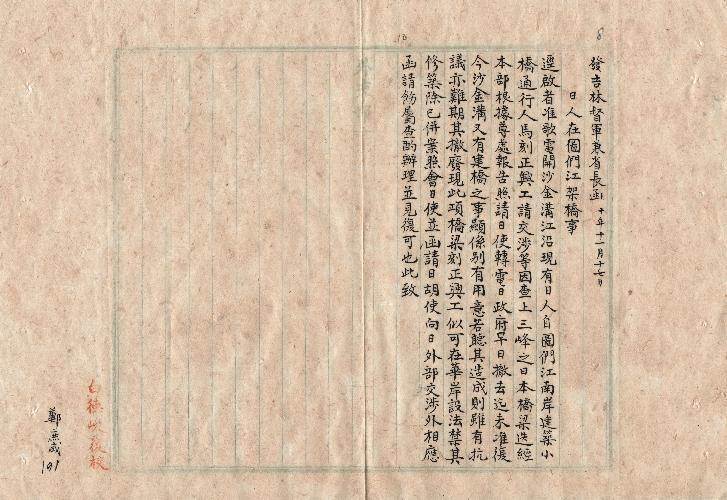 8
13
發吉林督軍兼省長函 十年十一月十七日
日人在圖們江架橋事
逕啟者准歌電開沙金溝江沿現有日人自圖們江南岸建築小
橋通行人馬刻正興工請交涉等因查上三峰之日本橋梁迭經
本部根據尊處報告照請日使轉電日政府早日撤去迄未准復
今沙金溝又有建橋之事顯係別有用意若聽其造成則雖有抗
議亦難期其撤廢現此項橋梁刻正興工似可在華岸設法禁其
修築除已併案照會日使並函請日胡使向日外部交涉外相應
函請飭屬查酌辦理並見復可也此致
白德以復校
鄭 咸
191